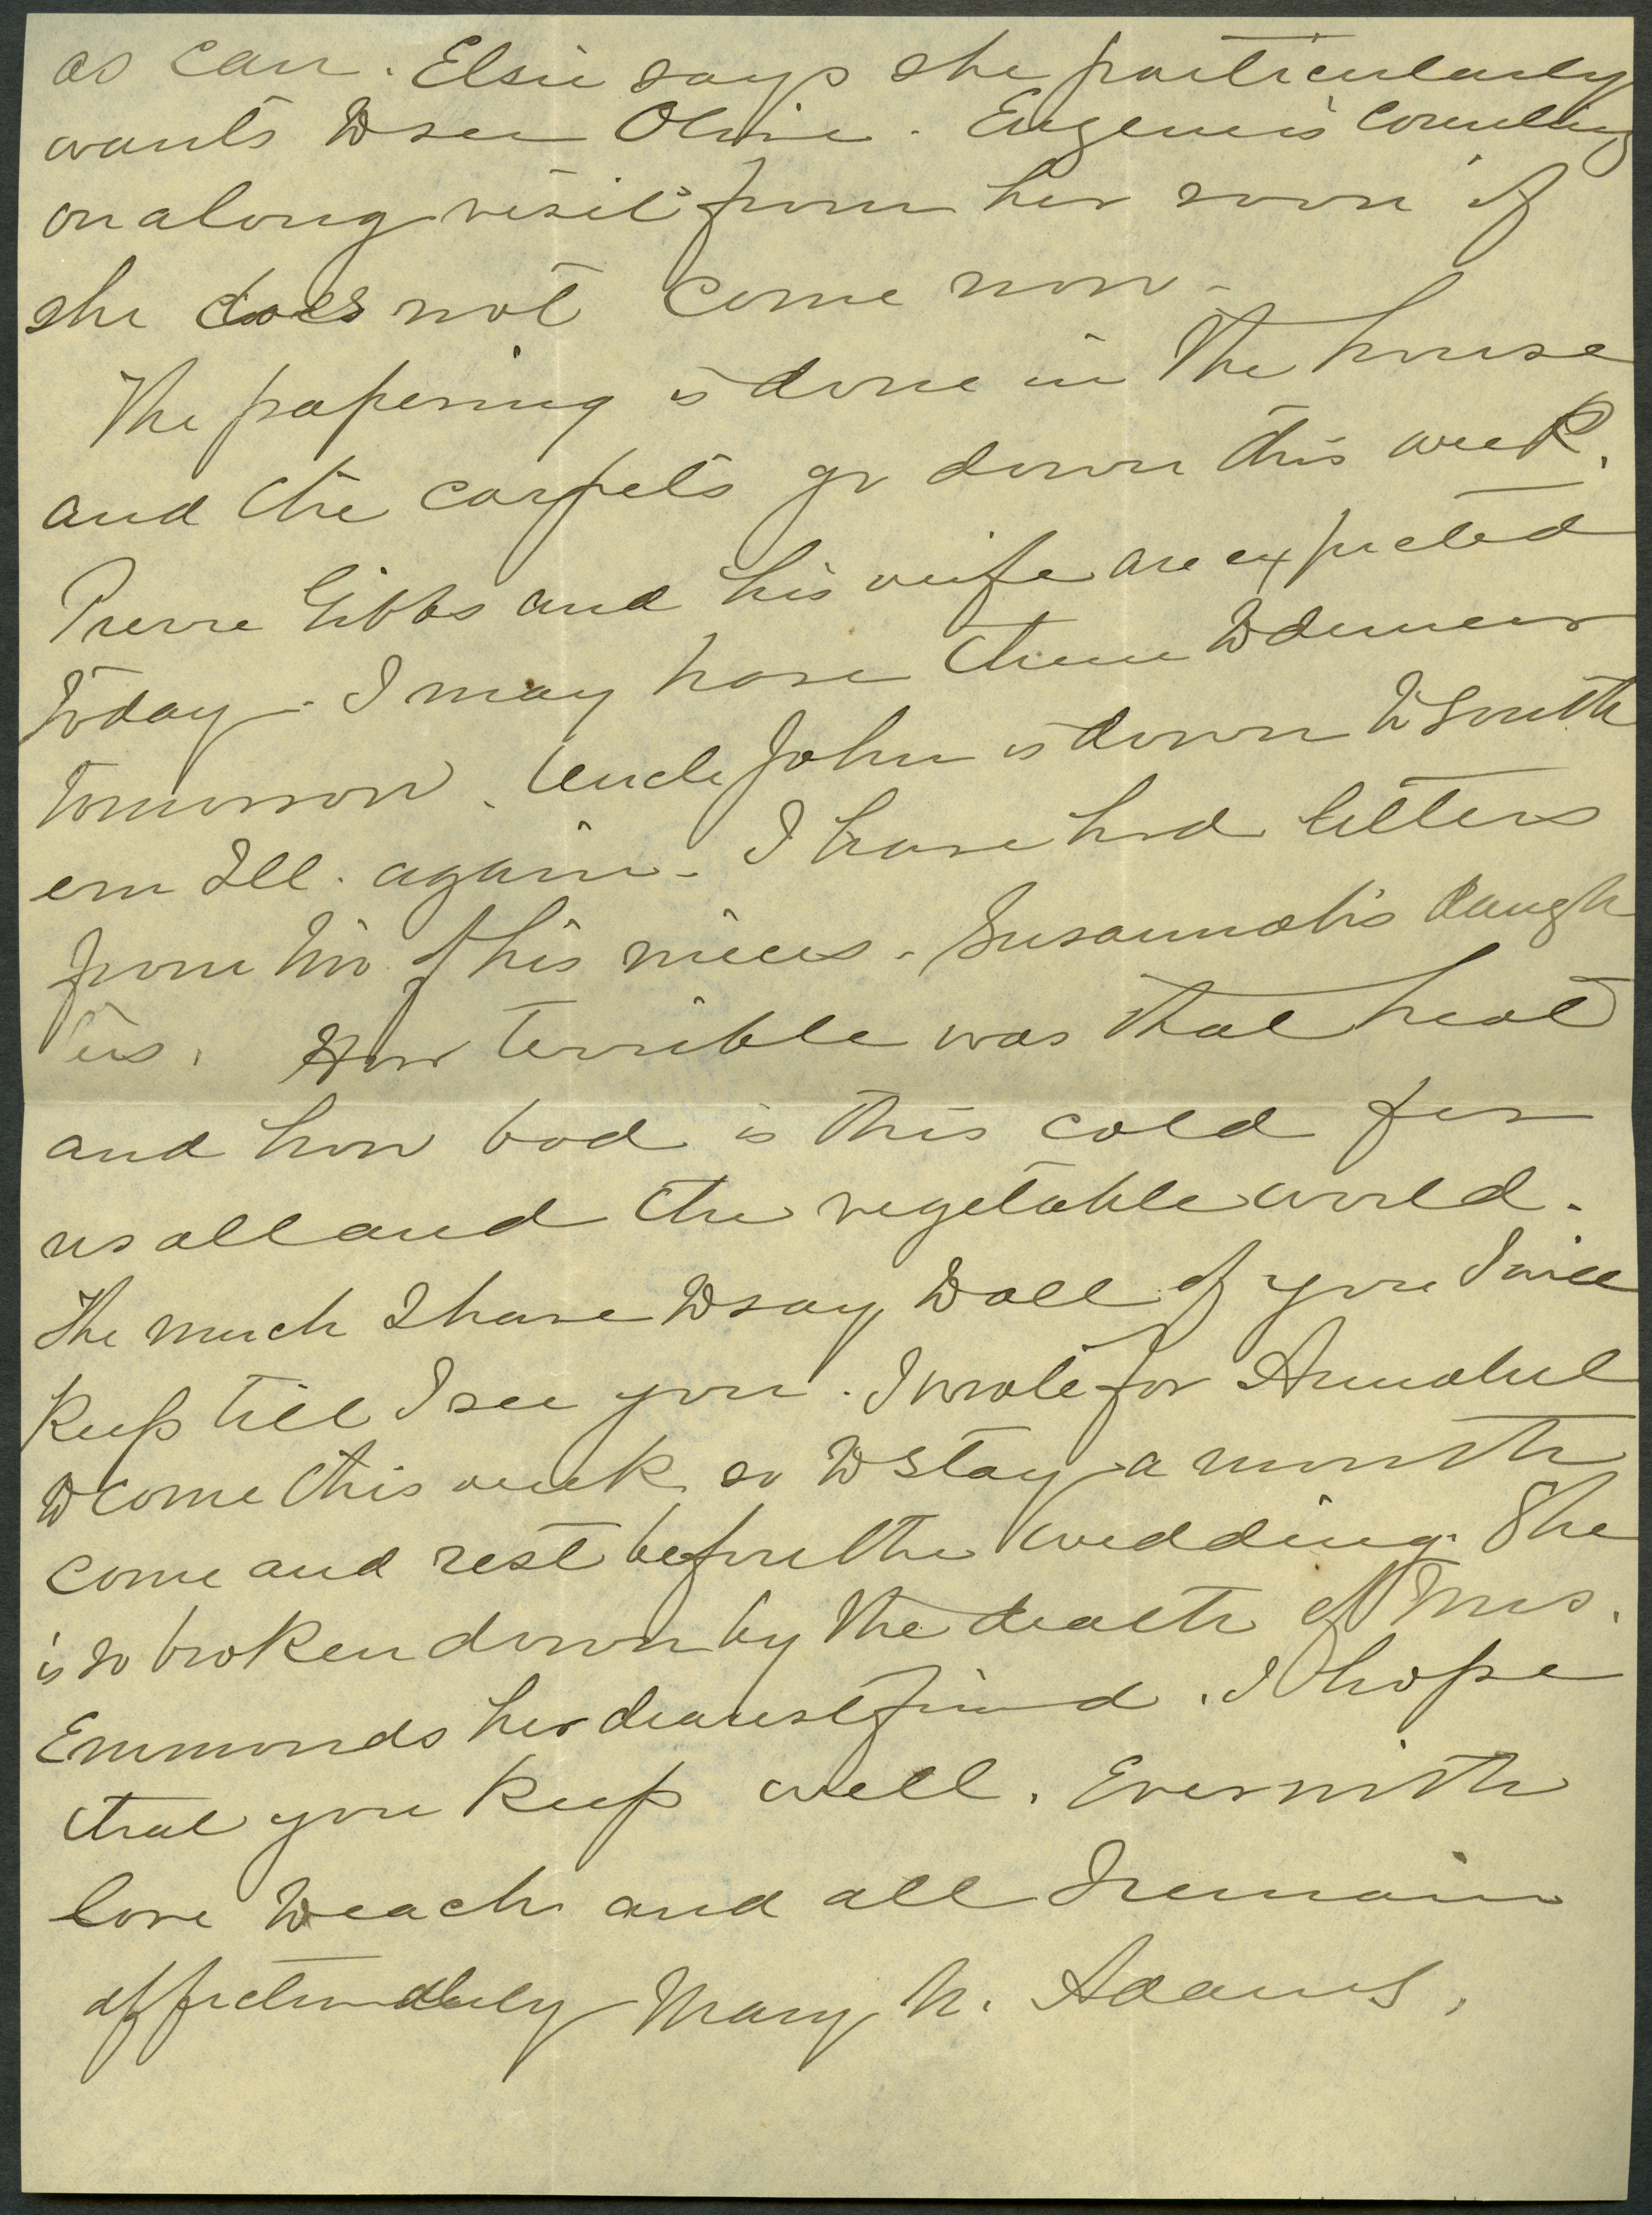 as can. Elsie says she particularly
wants to see Olivie. Eugene is counting
on a long visit from her soon if
she does not come now -
The papering is done in the house
and the carpets go down this week.
Pierre Gibbs and his wife are expected
today. I may have them to dinner
tomorrow. Uncle John is down to South
ern Ill. again - I have had letters
from two of his nieces - Susannah's daugh
ters. How terrible was that heat
and how bad is this cold for
us all and the vegetable world.
The much I have to say to all of you I will
keep till I see you. I wrote for Annabel
to come this week so to stay a month
come and rest before the wedding. She
is so broken down by the death of Mrs.
Emmonds her dearest friend. I hope
that you keep well. Ever with
love to each and all I remain
affectionately Mary N. Adams.